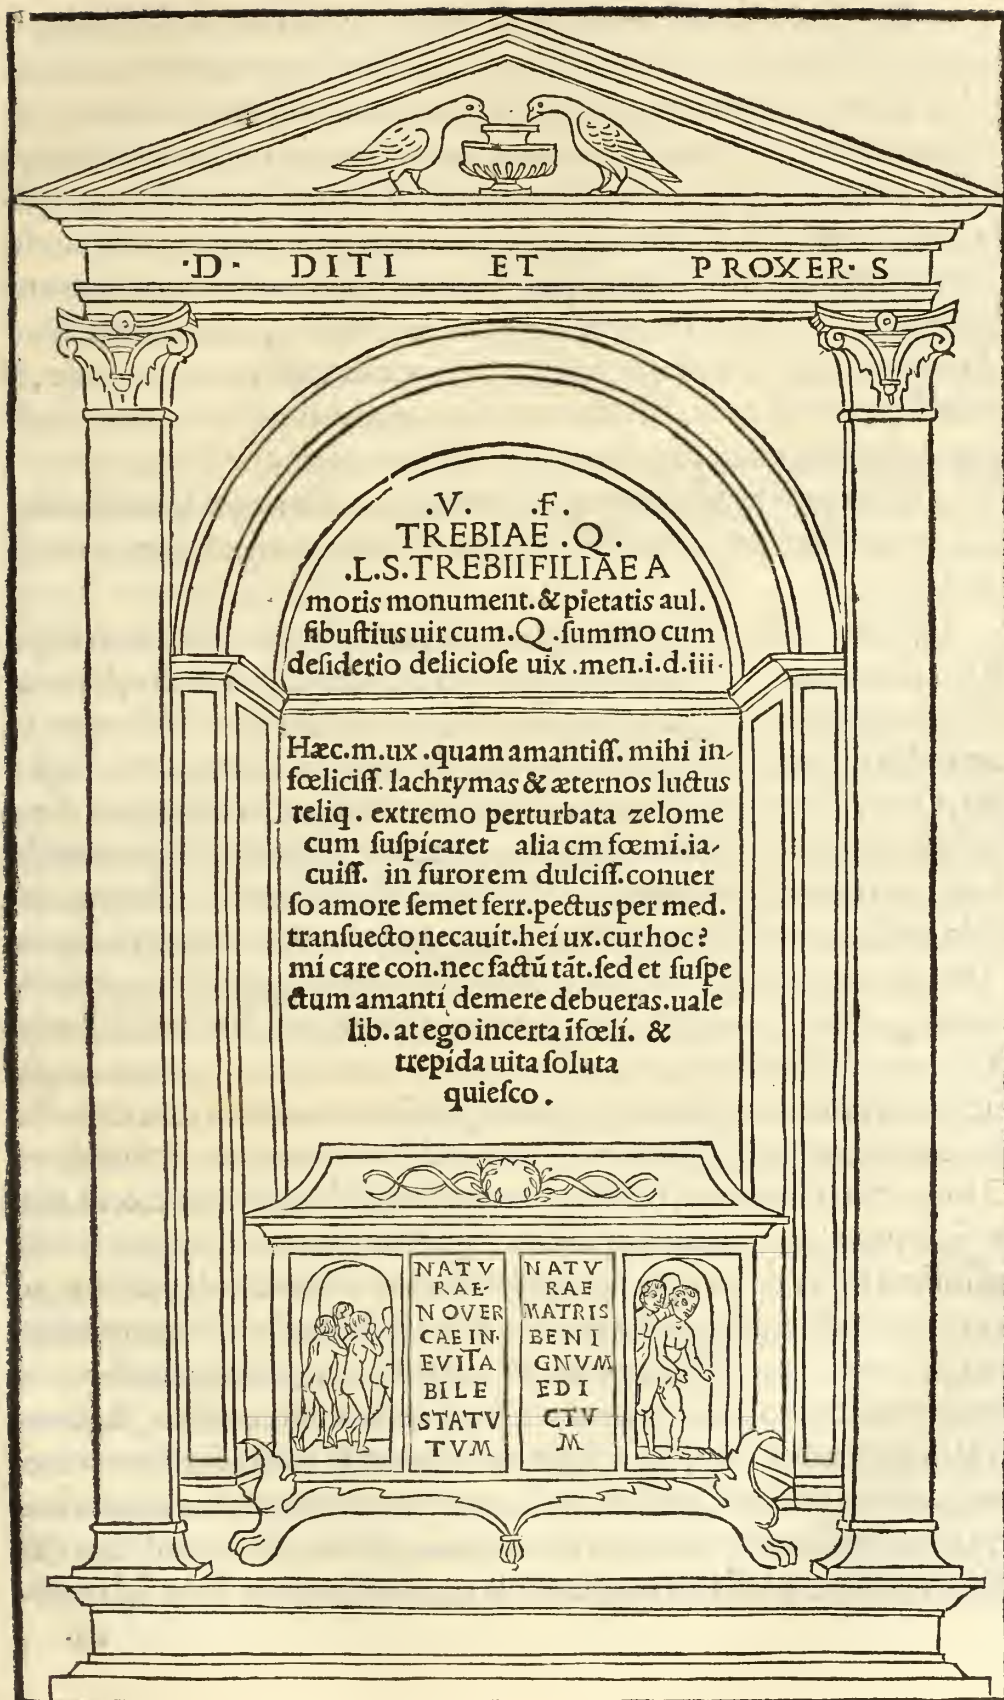 ·D· DITI ET PROXER· S
.V. .F.
TREBIAE .Q.
.L.S.TREBII FILIAE A
moris monument.& pietatis aul.
sibustius uir cum.Q.summo cum
desiderio deliciose uix .men.i.d.iii·
Hæc.m.ux .quam amantiss. mihi in-
fœliciss. lachrymas & æternos luctus
reliq. extremo perturbata zelo me
cum suspicaret alia cm fœmi.ia-
cuiss. in furorem dulciss.conuer
so amore semet ferr.pectus per med.
transuecto necauit.hei ux.cur hoc?
mi care con.nec factū tãt.sed et suspe
ctum amanti demere debueras.uale
lib. at ego incerta ĩfœli. &
trepida uita soluta
quiesco.
NATV
RAE·
NOVER
CAE IN·
EVITA
BILE
STATV
TVM
NATV
RAE
MATRIS
BENI
GNVM
EDI
CTV
M